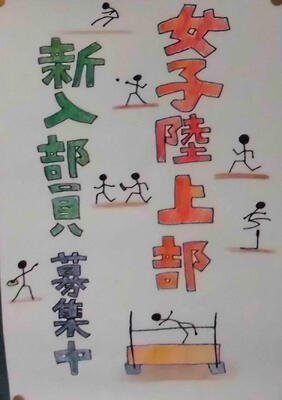 女子陸上部
新入部員募集中